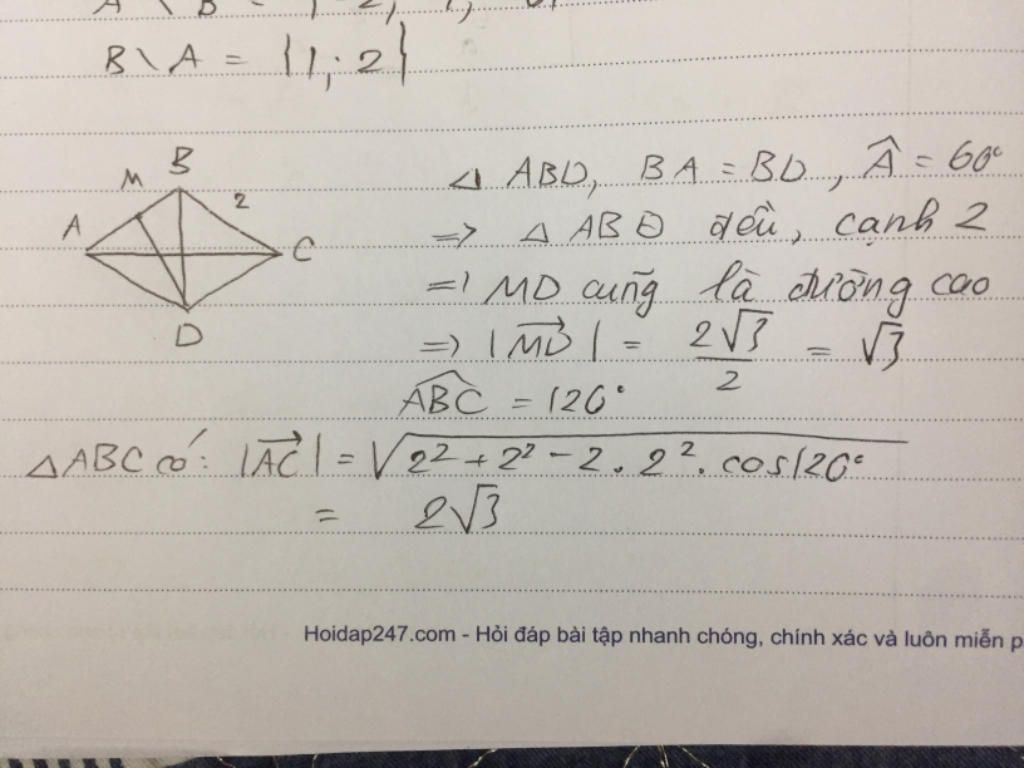 B \ A = {1; 2}
B
M
2
A
C
D
△ ABD, BA = BD, Â = 60°
=> △ ABD đều, cạnh 2
=> MD cũng là đường cao
=> |\overrightarrow{MD}| = \frac{2√3}{2} = √3
\widehat{ABC} = 120°
△ABC có: |\overrightarrow{AC}| = \sqrt{2² + 2² - 2 . 2² . cos120°}
= 2√3
Hoidap247.com - Hỏi đáp bài tập nhanh chóng, chính xác và luôn miễn p